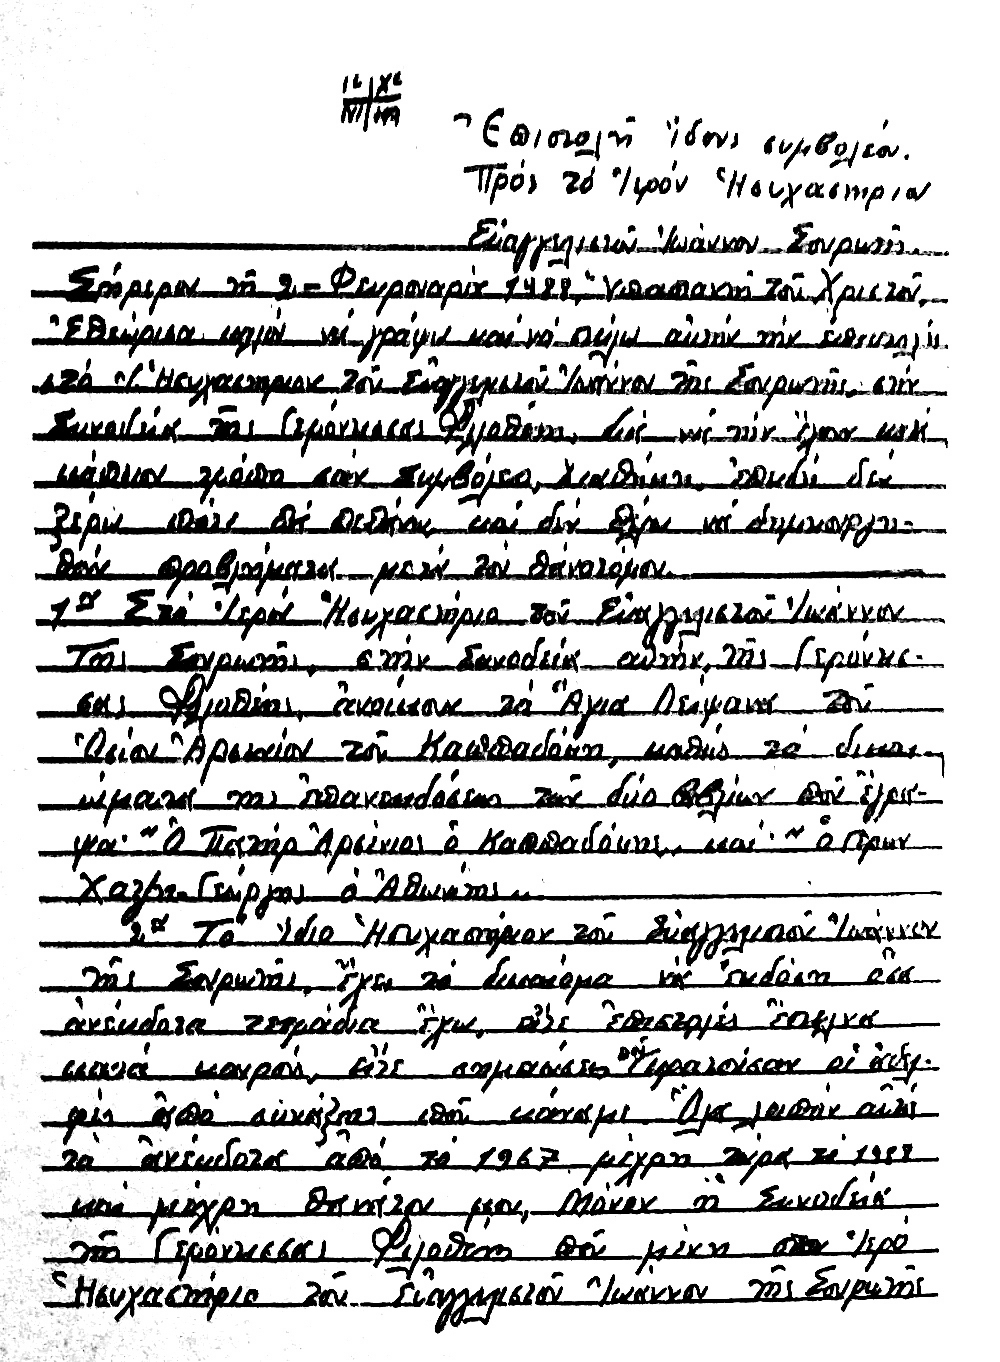 ΙC ΧC
ΝΙ ΚΑ
Ἐπιστολὴ ἴδους συμβολέον.
Πρός τὸ Ἱερόν Ἡσυχαστήριον
Εὐαγγελιστοῦ Ἰωάννου Σουρωτῆς.
Σήμερον τῇ 2 = Φευρουαρίᾳ 1988, Ὑπαπαντὴ τοῦ Χριστοῦ,
Ἐθεώρισα καλόν νά γράψω καί νά στείλω αὐτήν τήν ἐπιστολή
στό Ἱ. Ἡσυχαστήριον τοῦ Εὐαγγελιστοῦ Ἰωάννου τῆς Σουρωτῆς, στήν
Συνοδεία τῆς Γερόντισσας Φιλοθέης, διά νά τήν ἔχουν κατά
κάποιον τρόπο σάν συμβόλεο, διαθήκη, ἐπειδή δέν
ξέρω πότε θά πεθάνω καί δέν θέλω νά δημιουργη-
θοῦν προβλήματα μετά τόν θάνατόμου.
1ον Στό Ἱερόν Ἡσυχαστήριο τοῦ Εὐαγγελιστοῦ Ἰωάννου
Τῆς Σουρωτῆς, στήν Συνοδεία αὐτήν, τῆς Γερόντισ-
σας Φιλοθέης, ἀνοίκουν τά Ἅγια Λείψανα τοῦ
Ὁσίου Ἀρσενίου τοῦ Καππαδόκη, καθώς τά δικαι-
ώματα τῆς ἐπανεκδόσεως τῶν δύο βιβλίων πού ἔγρα-
ψα· "Ὁ Πατήρ Ἀρσένιος ὁ Καππαδόκης, καί· "ὁ Γέρων
Χατζη-Γεώργης ὁ Ἀθωνίτης.
2ον Τό ἴδιο Ἡσυχαστήριον τοῦ Εὐαγγελιστοῦ Ἰωάννου
τῆς Σουρωτῆς, ἔχει τό δικαίομα νά ἐκδόση ὅσα
ἀνέκδοτα τετράδια ἔχω, εἴτε ἐπιστολές ἔστελνα
κατά καιρούς, εἴτε σημειώσεις πού κρατοῦσαν οἱ ἀδελ-
φές ἀπό συνάξεις πού κάναμε. Ὅλα λοιπόν αὐτά
τά ἀνέκδοτα ἀπό τό 1967 μέχρη τώρα τό 1988
καί μέχρη θανάτου μου, Μόνον ἡ Συνοδεία
τῆς Γερόντισσας Φιλοθέης πού μένη στό Ἱερό
Ἡσυχαστήριο τοῦ Εὐαγγελιστοῦ Ἰωάννου τῆς Σουρωτῆς